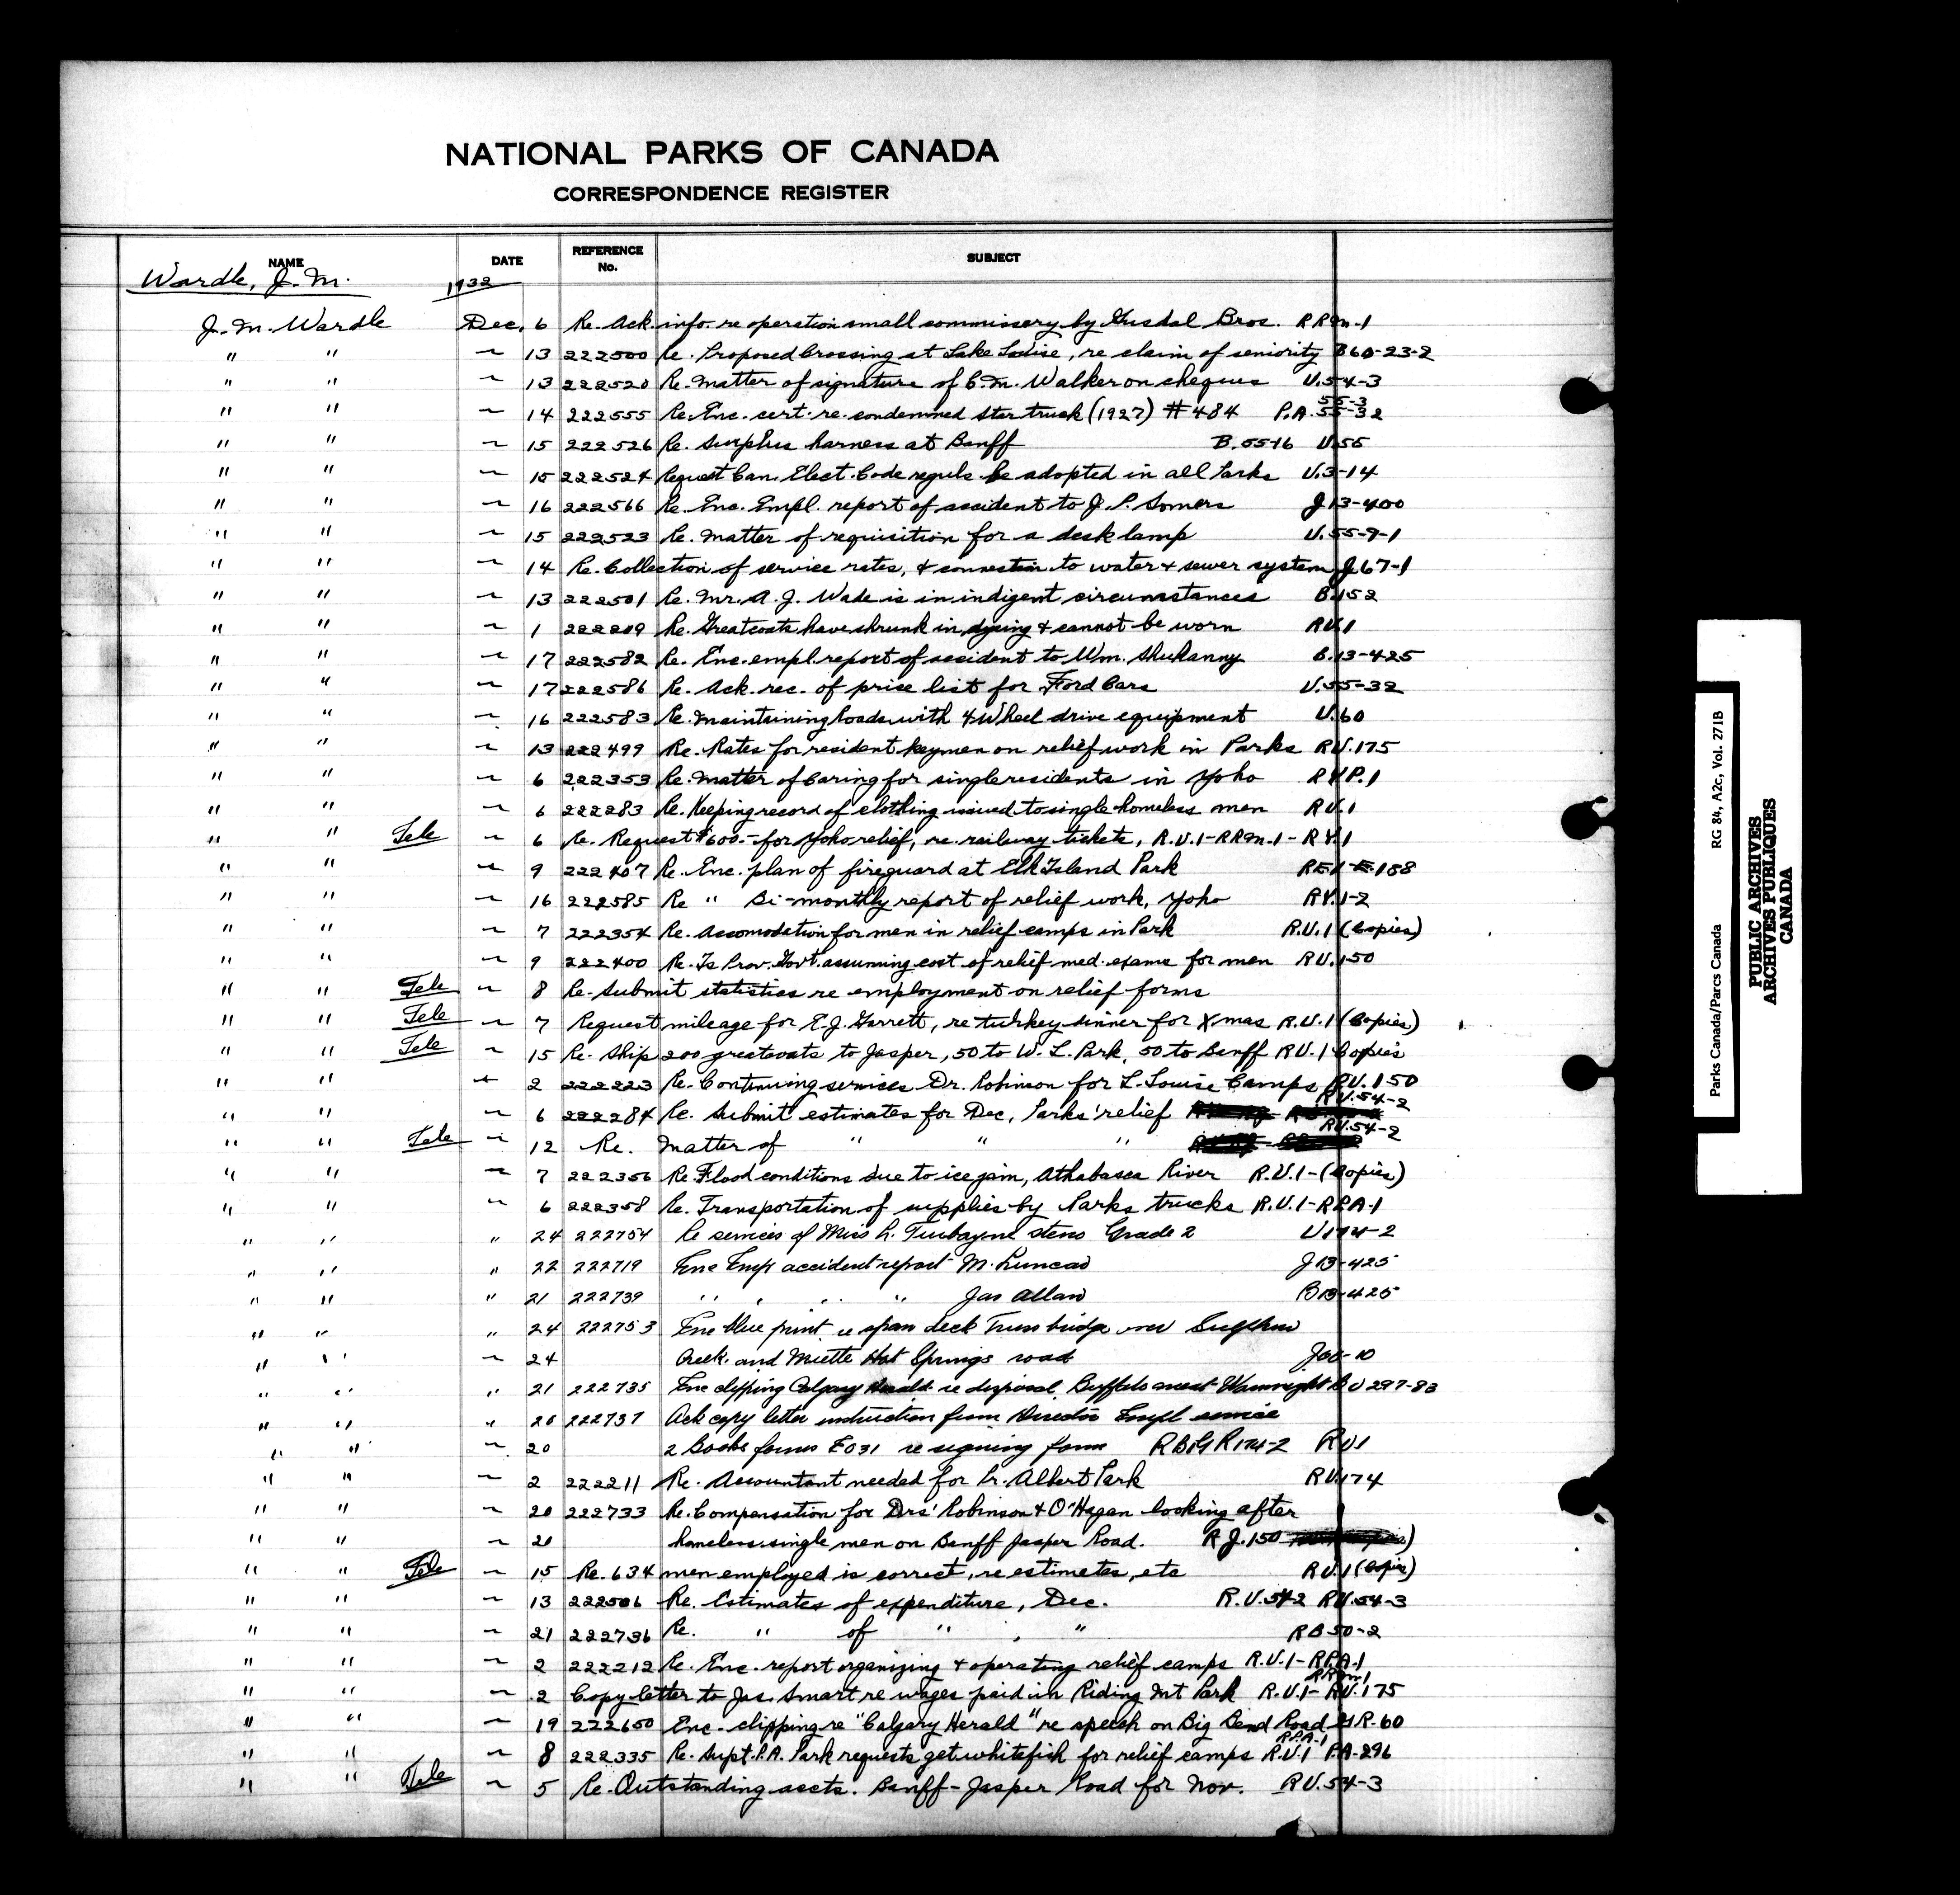 NATIONAL PARKS OF CANADA
CORRESPONDENCE REGISTER
NAME DATE REFERENCE No. SUBJECT
Wardle, J. M. 1932
J. M. Wardle Dec. 6 Re. Ack. info. re operation small commissary by Gusdal Bros. RRM-1
" " ~ 13 222500 Re. Proposed Crossing at Lake Louise, re claim of seniority B60-23-2
" " ~ 13 222520 Re. Matter of signature of C. M. Walker on cheques U.54-3
" " ~ 14 222555 Re. Enc. cert. re. condemned star truck (1927) #484 P.A. 55-32 55-3
" " ~ 15 222526 Re. Surplus harness at Banff B.5516 U.55
" " ~ 15 222524 Request Can. Elect. Code reguls. be adopted in all Parks U.3-14
" " ~ 16 222566 Re. Enc. Empl. report of accident to J. P. Somers J13-400
" " ~ 15 222523 Re. Matter of requisition for a desk lamp U.55-9-1
" " ~ 14 Re. Collection of service rates, & connection to water & sewer system J67-1
" " ~ 13 222501 Re. Mr. A. J. Wade is in indigent circumstances B.152
" " ~ 1 222209 Re. Greatcoats have shrunk in dyeing & cannot be worn RU.1
" " ~ 17 222582 Re. Enc. empl. report of accident to Wm. Shukanny B.13-425
" " ~ 17 222586 Re. Ack. rec. of price list for Ford Cars U.55-32
" " ~ 16 222583 Re. Maintaining Roads with 4 Wheel drive equipment U.60
" " ~ 13 222499 Re. Rates for resident keymen on relief work in Parks RU.175
" " ~ 6 222353 Re. Matter of Caring for single residents in Yoho RYP.1
" " ~ 6 222283 Re. Keeping record of clothing issued to single homeless men RU.1
" " Tele ~ 6 Re. Request $600.- for Yoho relief, re. railway tickets, R.U.1-RRM.1-RY.1
" " ~ 9 222407 Re. Enc. plan of fireguard at Elk Island Park RE1-E158
" " ~ 16 222585 Re " Bi-monthly report of relief work, Yoho RY.1-2
" " ~ 7 222354 Re. Accomodation for men in relief camps in Park R.U.1 (Copies)
" " ~ 9 222400 Re. Is Prov. Govt. assuming cost of relief med. exams for men RU.150
" " Tele ~ 8 Re-Submit statistics re employment on relief forms
" " Tele ~ 7 Request mileage for E. J. Garrett, re turkey dinner for Xmas R.U.1 (Copies)
" " Tele ~ 15 Re. Ship 200 greatcoats to Jasper, 50 to W. L. Park, 50 to Banff RU.1 Copies
" " ~ 2 222223 Re. Continuing services Dr. Robinson for L. Louise Camps RU.150
" " ~ 6 222284 Re. Submit estimates for Dec, Parks' relief RU.54-2
" " Tele ~ 12 Re. Matter of " " " RU.54-2
" " ~ 7 222356 Re. Flood conditions due to ice jam, Athabasca River R.U.1-(Copies)
" " ~ 6 222358 Re. Transportation of supplies by Parks trucks R.U.1-RPA-1
" " " 24 222754 Re services of Miss L. Turbayne steno Grade 2 U174-2
" " " 22 222719 Enc Empl accident report M. Luncad J13-425
" " " 21 222739 " " " " Jas Allan B13-425
" " " 24 222753 Enc blue print re span deck Truss bridge over Sulphur
" " ~ 24 Creek and Miette Hot Springs road J60-10
" " " 21 222735 Enc clipping Calgary Herald re disposal Buffalo meat Wainwright BU297-83
" " " 20 222737 Ack copy letter instruction from Director Empl service
" " ~ 20 2 Books forms E031 re signing form RBG R174-2 RU1
" " ~ 2 222211 Re. Accountant needed for Pr. Albert Park RU.174
" " ~ 20 222733 Re. Compensation for Drs' Robinson & O'Hagan looking after
" " ~ 20 homeless single men on Banff Jasper Road. RJ.150
" " Tele ~ 15 Re. 634 men employed is correct, re estimates, etc RU.1 (Copies)
" " ~ 13 222506 Re. Estimates of expenditure, Dec. R.U.54-2 RU.54-3
" " ~ 21 222736 Re. " of " , " RB50-2
" " ~ 2 222212 Re. Enc. report organizing & operating relief camps R.U.1-RPA.1
" " ~ 2 Copy letter to Jas. Smart re wages paid in Riding Mt Park R.U.1-RU.175 RRM.1
" " ~ 19 222650 Enc. clipping re "Calgary Herald" re speech on Big Bend Road GR-60
" " ~ 8 222335 Re. Supt. P.A. Park requests get whitefish for relief camps R.U.1 PA-296 RPA-1
" " Tele ~ 5 Re-Outstanding accts. Banff-Jasper Road for Nov. RU.54-3
RG 84, A2c, Vol. 271B
Parks Canada/Parcs Canada
PUBLIC ARCHIVES
ARCHIVES PUBLIQUES
CANADA